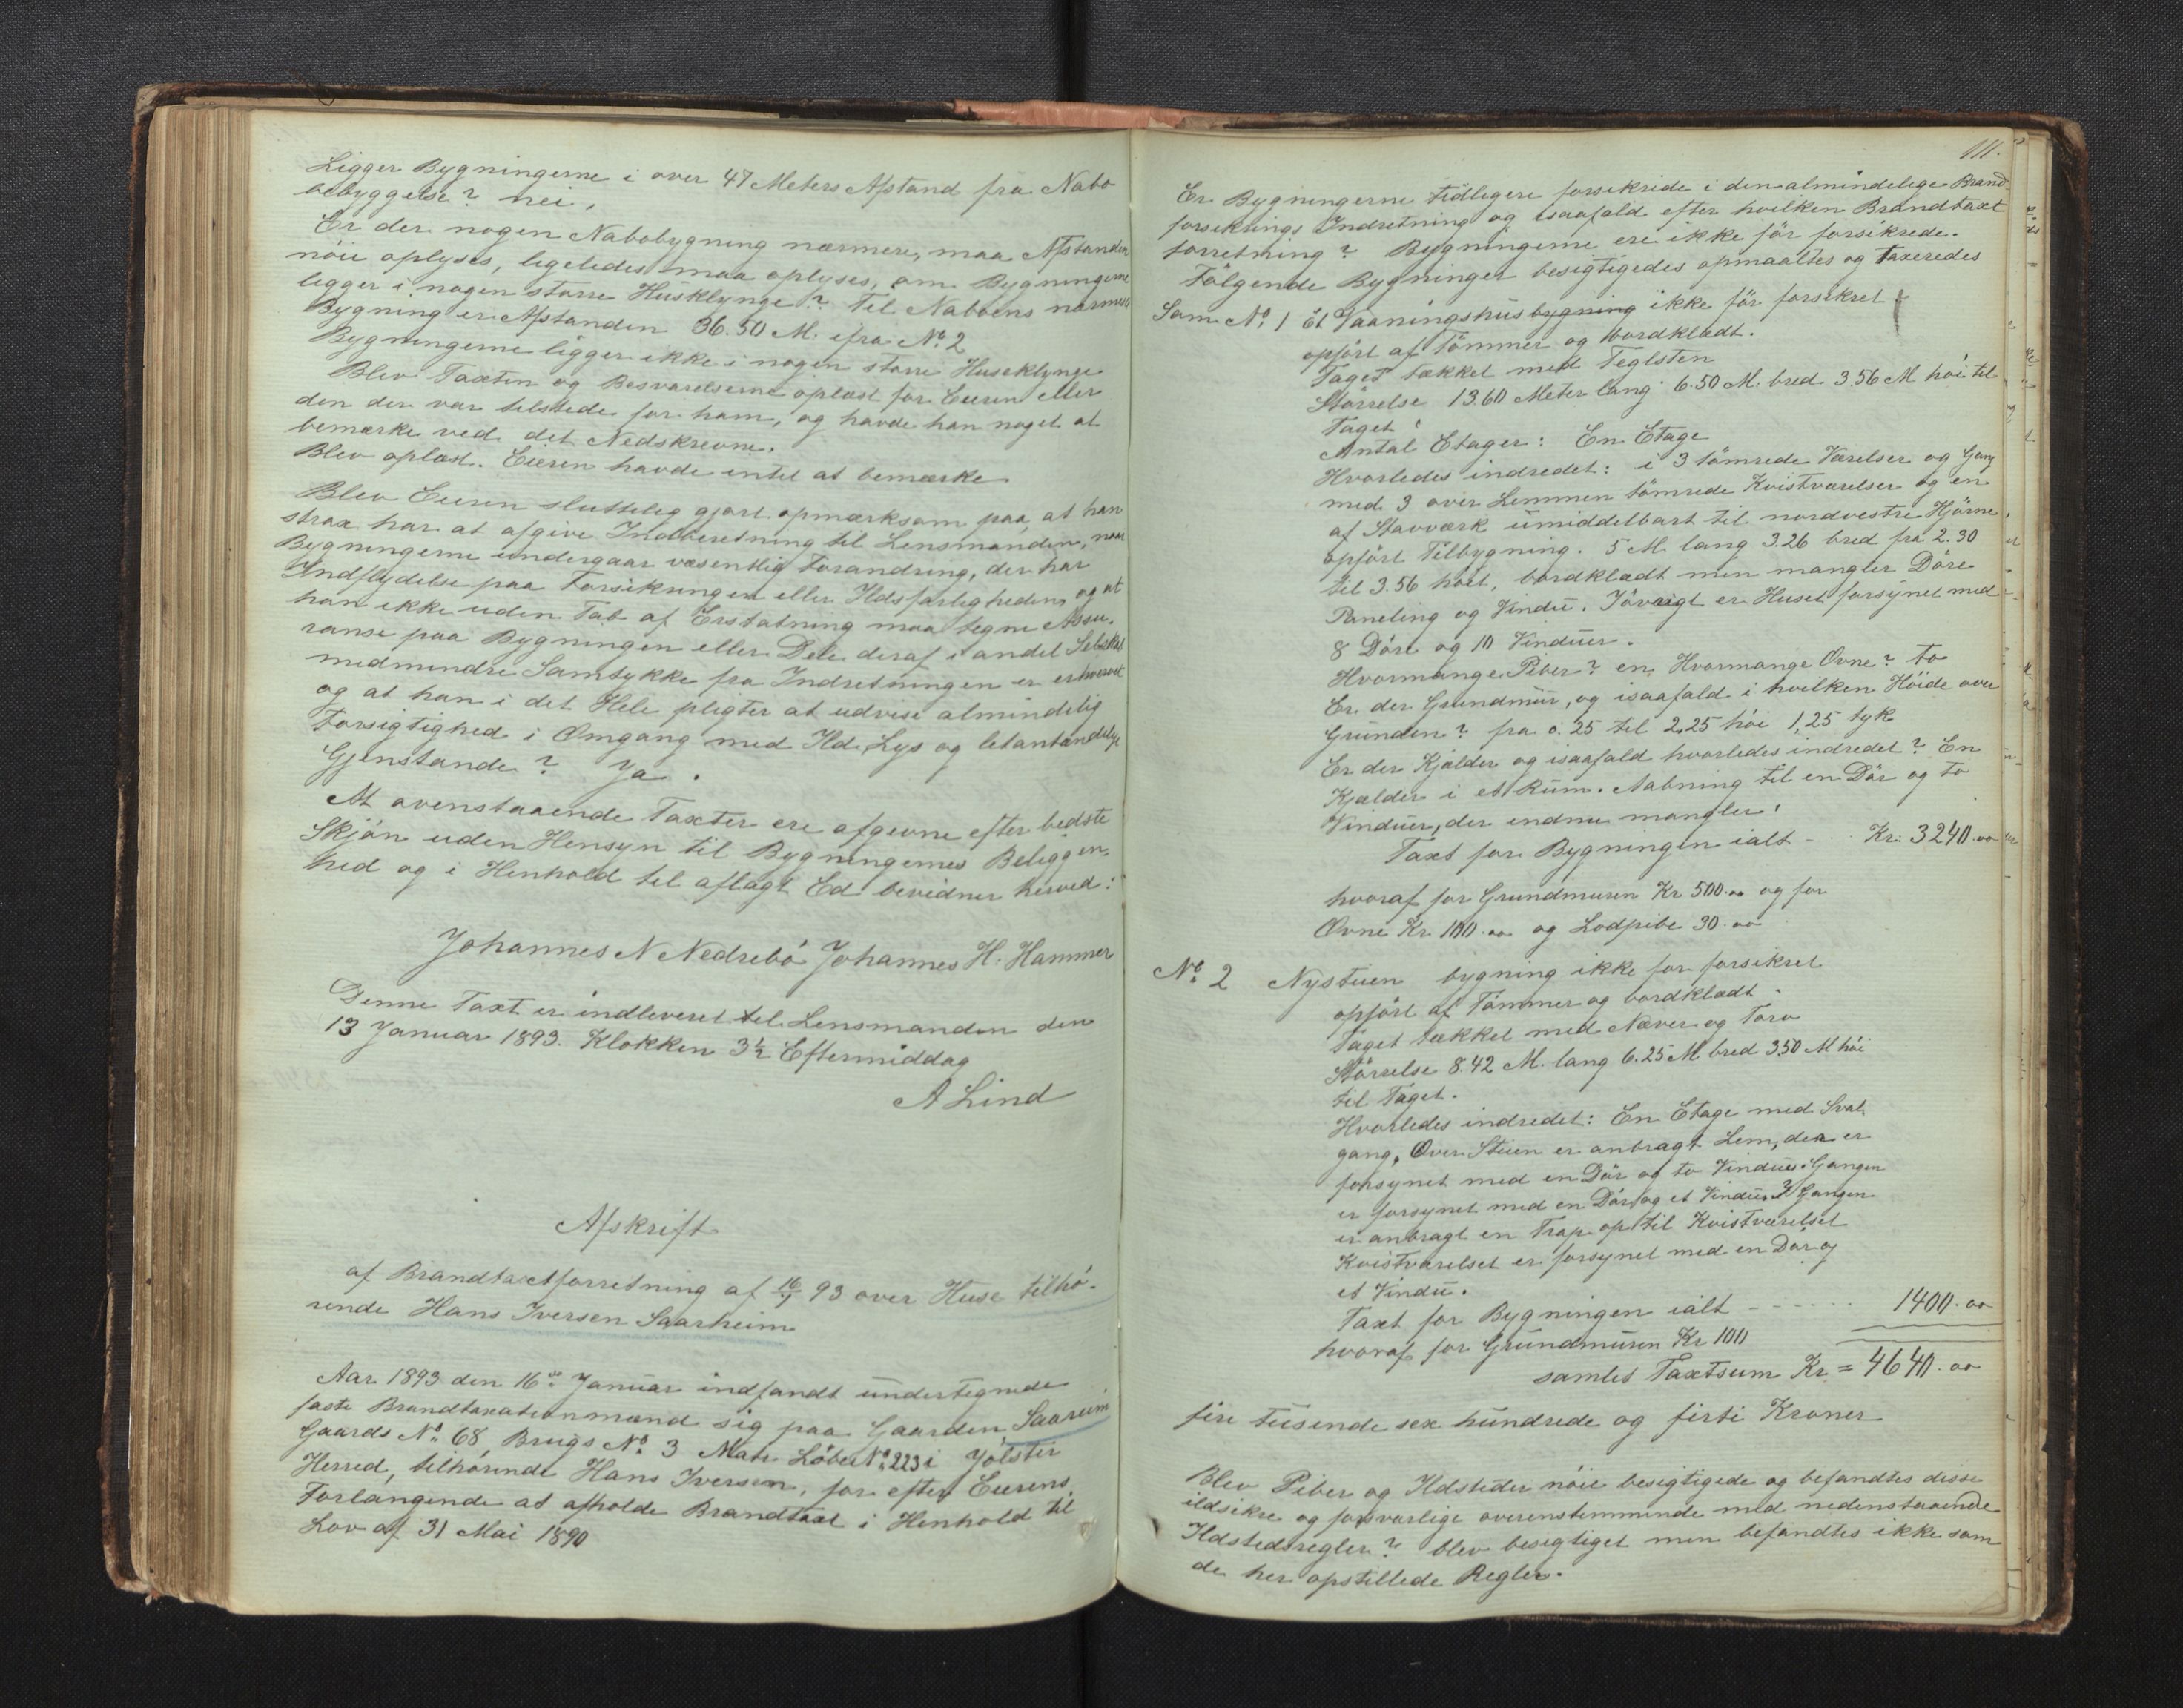 Ligger Bygningerne i over 47 Meters Afstand fra Nabo
bebyggelse? nei.
Er der nogen Nabobygning nærmere, maa Afstanden
nöie oplyses, ligeledes maa oplyses, om Bygningerne
ligger i nogen større Husklynge? Til Naboens nærmeste
Bygning er Afstanden 36.50 M. ifra No. 2
Bygningerne ligger ikke i nogen større Huseklynge
Blev Taxten og Besvarelserne oplæst for Eieren eller
den der var tilstede for ham, og havde han noget at
bemærke ved det Nedskrevne.
Blev oplæst. Eieren havde intet at bemærke
Blev Eieren sluttelig gjort opmærksom paa, at han
strax har at afgive Indberetning til Lensmanden, naar
Bygningerne undergaar væsentlig Forandring, der har
Indflydelse paa Forsikringen eller Ildsfarligheden, og at
han ikke uden Tab af Erstatning maa tegne Assu-
ranse paa Bygningen eller Dele deraf i andet Selskab
medmindre Samtykke fra Indretningen er erhvervet
og at han i det Hele pligter at udvise almindelig
Forsigtighed i Omgang med Ild, Lys og letantændelige
Gjenstande? Ja.
At ovenstaaende Taxter ere afgivne efter bedste
Skjön uden Hensyn til Bygningernes Beliggen-
hed og i Henhold til aflagt Ed bevidner herved:
Johannes N Nedrebö Johannes H. Hammer
Denne Taxt er indleveret til Lensmanden den
13 Januar 1893. Klokken 3½ Eftermiddag
A Lind
Afskrift
af Brandtaxtforretning af 16/1 93 over Huse tilhö-
rende Hans Iversen Saarheim
Aar 1893 den 16de Januar indfandt undertegnede
faste Brandtaxationmænd sig paa Gaarden Saareim
Gaards No. 68, Brugs No. 3 Matr. Löbe No. 223 i Jölster
Herred, tilhörende Hans Iversen, for efter Eierens
Forlangende at afholde Brandtaxt i Henhold til
Lov af 31 Mai 1890
111.
Er Bygningerne tidligere forsikride i den almindelige Brand
forsikrings Indretning og isaafald efter hvilken Brandtaxt
forretning? Bygningerne ere ikke för forsikrede.
Fölgende Bygninger besigtigedes opmaaltes og taxeredes
Som No. 1 Et Vaaningshusbygning ikke för forsikret
opfört af Tömmer og bordklædt.
Taget tækket med Teglsten
Störrelse 13.60 Meter lang 6.50 M. bred 3.56 M höi til
Taget
Antal Etager: En Etage
Hvorledes indredet: i 3 tömrede Værelser og Gang
med 3 over Lemmen tömrede Kvistværelser og en
af Stavværk umiddelbart til nordvestre Hjörne
opfört Tilbygning. 5 M. lang 3.26 bred fra 2.30
til 3.56 höit, bordklædt men mangler Döre
Paneling og Vindu. Iövrigt er Huset forsynet med
8 Döre og 10 Vinduer.
Hvormange Piber? en Hvormange Ovne? to
Er der Grundmur, og isaafald i hvilken Höide over
Grunden? fra 0.25 til 2,25 höi 1,25 tyk
Er der Kjælder og isaafald hvorledes indredet? En
Kjælder i et Rum. Aabning til en Dör og to
Vinduer, der endnu mangler.
Taxt for Bygningen ialt - Kr. 3240.00
hvoraf for Grundmuren Kr 500.00 og for
Ovne Kr. 100.00 og Lodpibe 30.00
No. 2 Nystuen bygning ikke for forsikret
opfört af Tömmer og bordklædt.
Taget tækket med Næver og Torv
Störrelse 8.42 M. lang 6.25 M bred 3.50 M höi
til Taget.
Hvorledes indredet: En Etage med Sval
gang. Over Stuen er anbragt Lem, der er
forsynet med en Dör og to Vinduer. Gangen
er forsynet med en Dör og et Vindu. I Gangen
er anbragt en Trap op til Kvistværelset
Kvistværelset er forsynet med en Dör og
et Vindu.
Taxt for Bygningen ialt - - - - - - 1400.00
hvoraf for Grundmuren Kr 100
samlet Taxtsum Kr = 4640.00
fire tusende sex hundrede og firti Kroner
Blev Piber og Ildsteder nöie besigtigede og befandtes disse
ildsikre og forsvarlige overenstemmende med nedenstaaende
Ildstedsregler? blev besigtiget men befandtes ikke som
de her opstillede Regler.